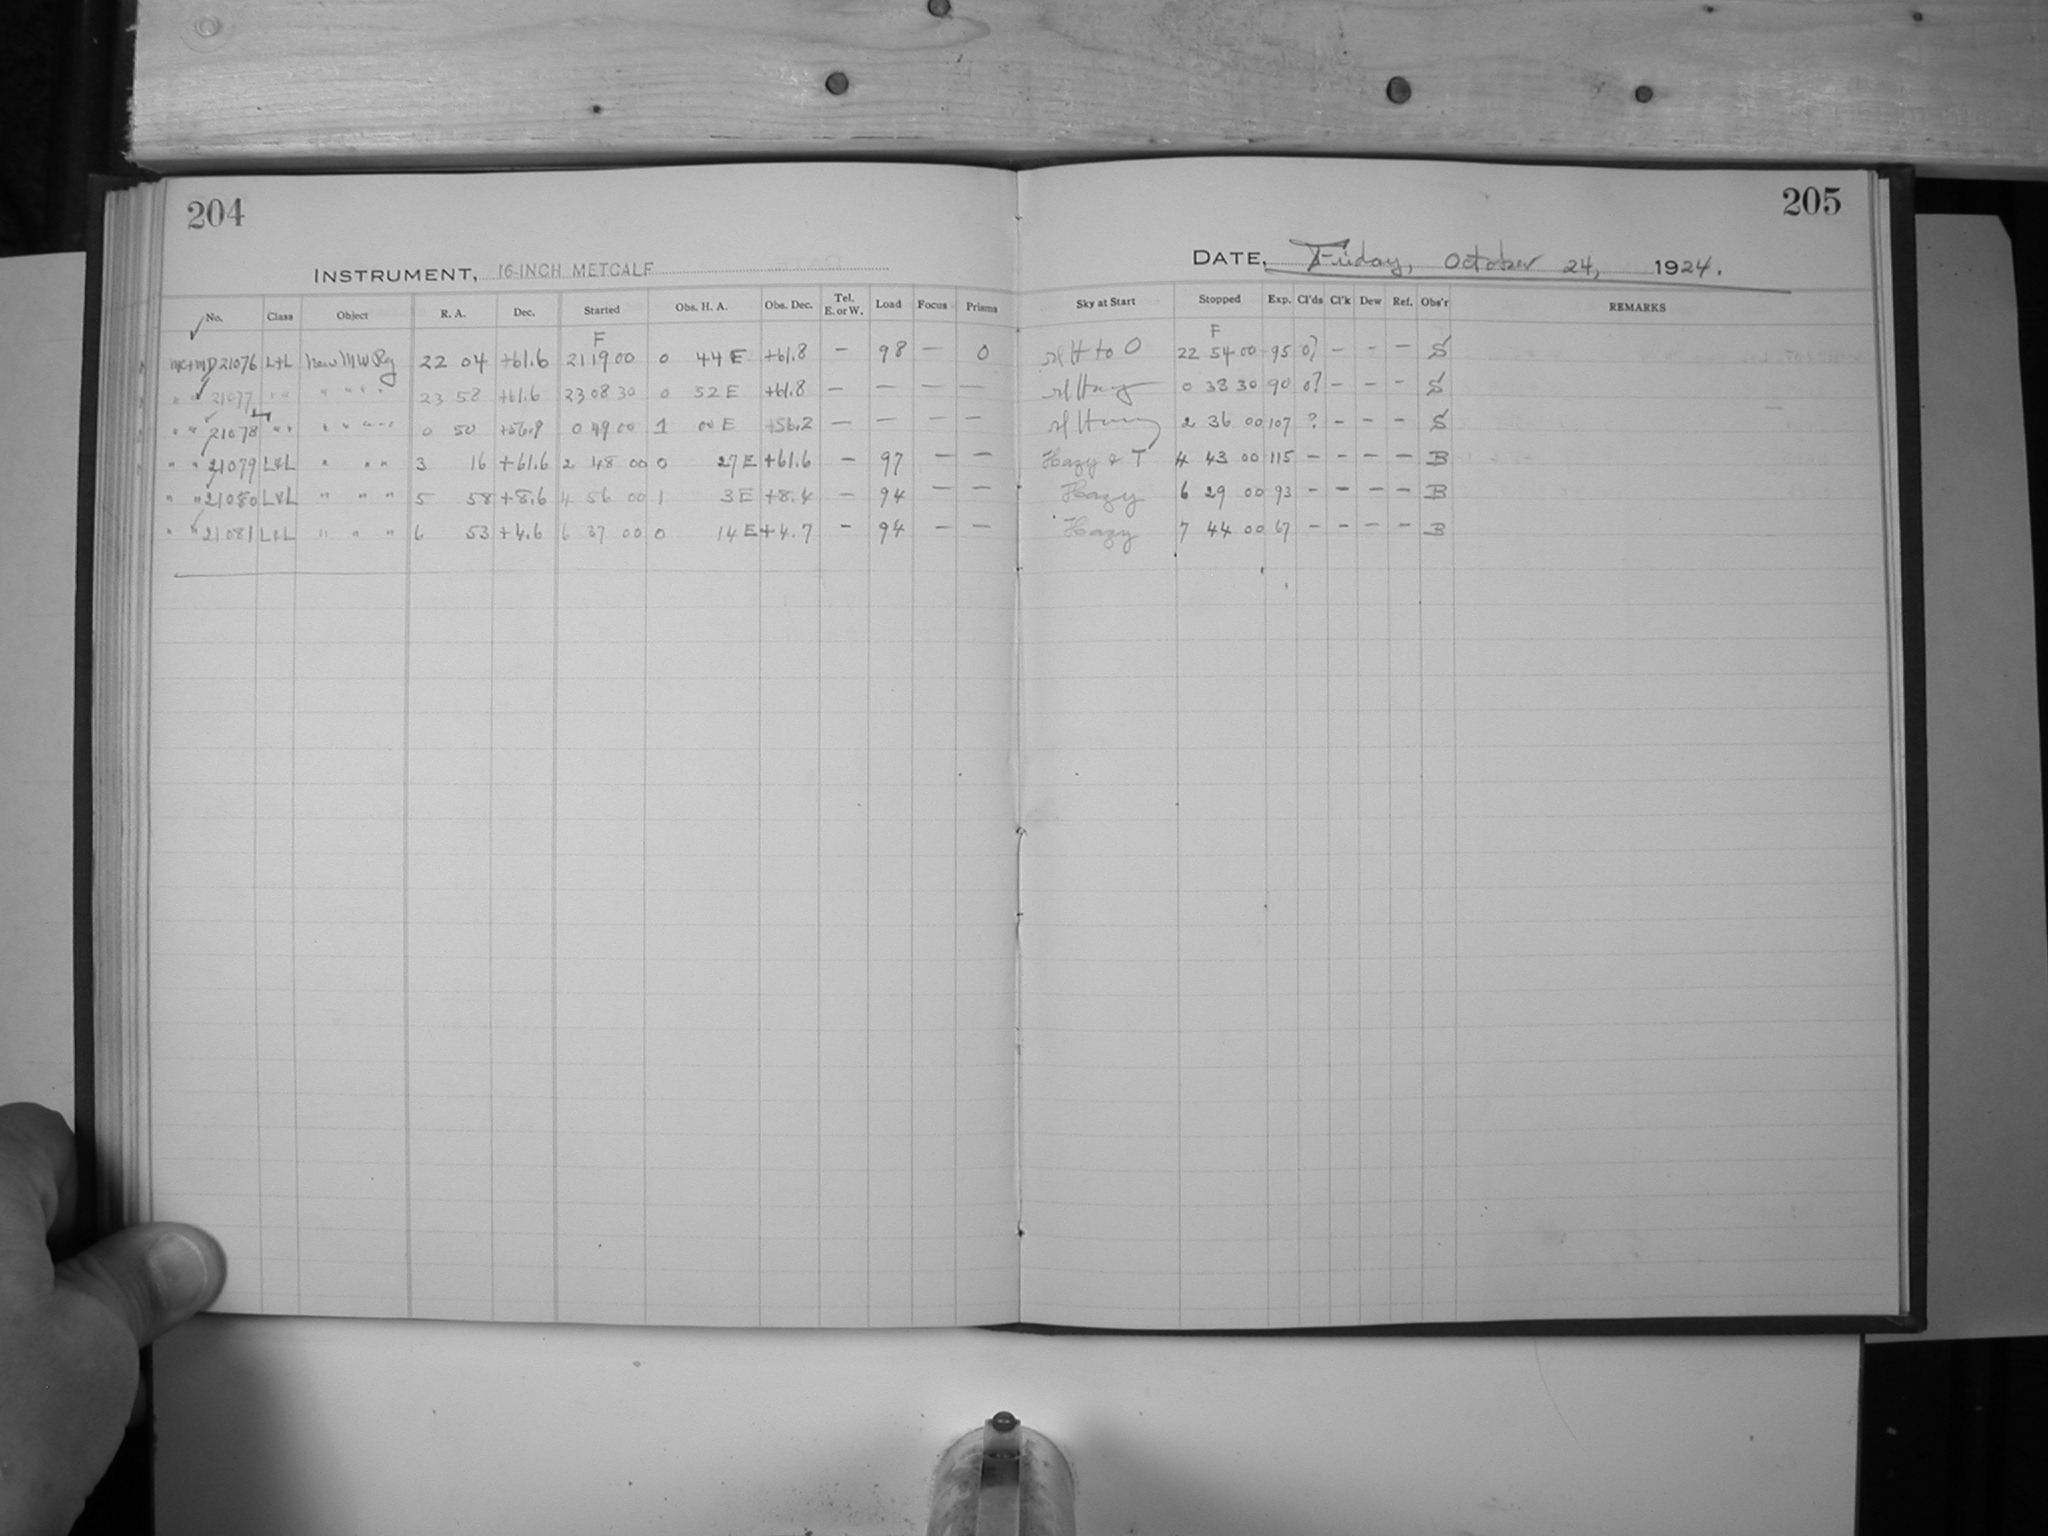 204
INSTRUMENT, 16-INCH METCALF
No. Class Object R. A. Dec. Started Obs. H. A. Obs. Dec. Tel. E. or W. Load Focus Prisms
F
MC+MD 21076 L+L New MW Rg 22 04 +61.6 21 19 00 0 44 E +61.8 — 98 — 0
" " 21077 " " " " " " 23 58 +61.6 23 08 30 0 52 E +61.8 — — — —
" " 21078 " " " " " " 0 50 +56.9 0 49 00 1 00 E +56.2 — — — —
" " 21079 L&L " " " 3 16 +61.6 2 48 00 0 27 E +61.6 — 97 — —
" " 21080 L&L " " " 5 58 +8.6 4 56 00 1 3 E +8.4 — 94 — —
" " 21081 L&L " " " 6 53 +4.6 6 37 00 0 14 E +4.7 — 94 — —
205
DATE, Friday, October 24, 1924.
Sky at Start Stopped Exp. Cl'ds Cl'k Dew Ref. Obs'r REMARKS
F
sl H to 0 22 54 00 95 0? — — — S
sl Hazy 0 38 30 90 0? — — — S
sl Hazy 2 36 00 107 ? — — — S
Hazy & T 4 43 00 115 — — — — B
Hazy 6 29 00 93 — — — — B
Hazy 7 44 00 67 — — — — B